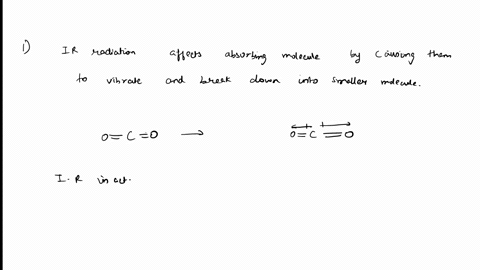 1) IR radiation affects absorbing molecule by causing them
to vibrate and break down into smaller molecule.
O=C=O → O=C=O
I.R in act.